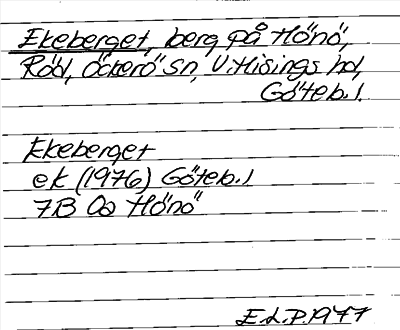 Ekeberget, berg på Hönö,
Röd, Öckerö sn, V. Hisings hd,
Göteb. l.
Ekeberget
ek (1976) Göteb. l
7B 0a Hönö
E.L.P. 1977